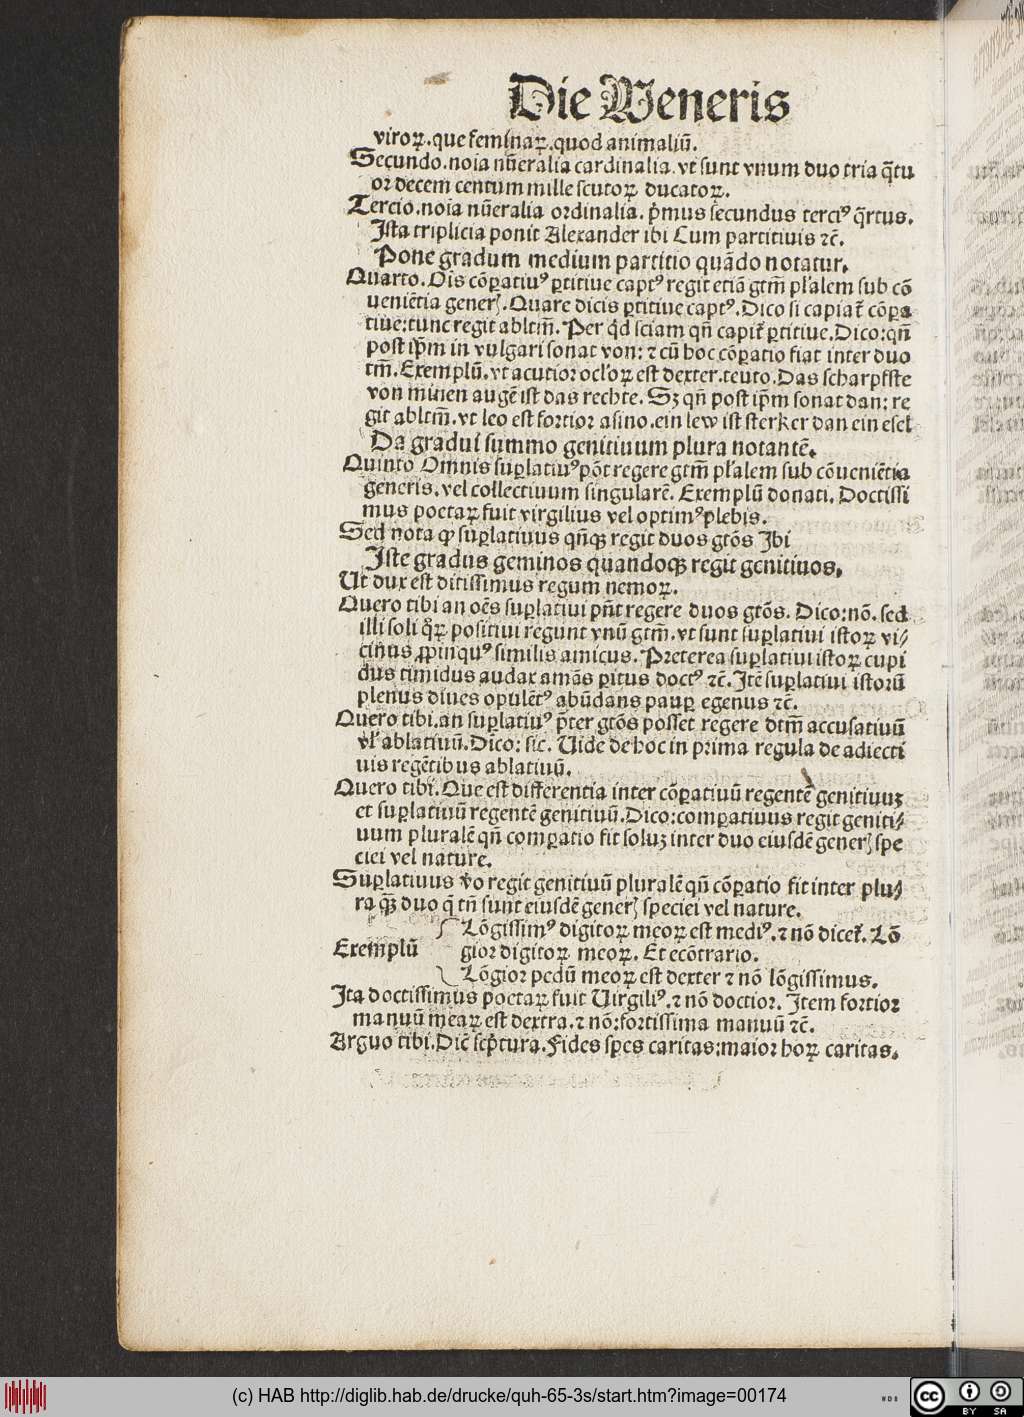 Die Veneris
viroꝝ.que feminaꝝ.quod animaliū.
Secundo.noīa nūeralia cardinalia.vt sunt vnum duo tria q̄tu
or decem centum mille scutoꝝ ducatoꝝ.
Tercio.noīa nūeralia ordinalia.p̄mus secundus terciꝰ q̄rtus.
Ista triplicia ponit Alexander ibi Cum partitiuis ⁊c̄.
Pone gradum medium partitio quādo notatur.
Quarto.Oīs cōꝑatiuꝰ ꝑtitiue captꝰ regit etiā gtm̄ pl'alem sub cō
ueniētia generꝭ.Quare dicis ꝑtitiue captꝰ.Dico si capiat̄ cōꝑa
tiue:tunc regit abltm̄.Per qͥd sciam qn̄ capit̄ ꝑtitiue.Dico:qn̄
post ip̄m in vulgari sonat von:⁊ cū hoc cōꝑatio fiat inter duo
tm̄.Exemplū.vt acutior ocl'oꝝ est dexter.teuto.Das scharpfste
von minen augē ist das rechte.Sꝫ qn̄ post ip̄m sonat dan:re
git abltm̄.vt leo est fortior asino.ein lew ist sterker dan ein esel
Da gradui summo genitiuum plura notantē.
Quinto Omnis suꝑlatiuꝰ pōt regere gtm̄ pl'alem sub cōueniētia
generis.vel collectiuum singularē.Exemplū donati.Doctissi
mus poetaꝝ fuit virgilius vel optimꝰ plebis.
Sed nota ꝙ suꝑlatiuus qn̄qꝫ regit duos gtōs Ibi
Iste gradus geminos quandoqꝫ regit genitiuos.
Ut dux est ditissimus regum nemoꝝ.
Quero tibi an oēs suꝑlatiui pn̄t regere duos gtōs.Dico:nō.sed
illi soli qͦꝝ positiui regunt vnū gtm̄.vt sunt suꝑlatiui istoꝝ vi⸗
cinus ꝓpinquꝰ similis amicus.Preterea suꝑlatiui istoꝝ cupi
dus timidus audax amās ꝑitus doctꝰ ⁊c̄.Itē suꝑlatiui istorū
plenus diues opulētꝰ abūdans pauꝑ egenus ⁊c̄.
Quero tibi.an suꝑlatiuꝰ p̄ter gtōs posset regere dtm̄ accusatiuū
vl' ablatiuū.Dico:sic.Uide de hoc in prima regula de adiecti
uis regētibus ablatiuū.
Quero tibi.Que est differentia inter cōꝑatiuū regentē genitiuuꝫ
et suꝑlatiuū regentē genitiuū.Dico:comꝑatiuus regit geniti⸗
uum pluralē qn̄ comꝑatio fit soluꝫ inter duo eiusdē generꝭ spe
ciei vel nature.
Suꝑlatiuus v̊o regit genitiuū pluralē qn̄ cōꝑatio fit inter plu⸗
ra qꝫ duo q̄ tn̄ sunt eiusdē generꝭ speciei vel nature.
Lōgissimꝰ digitoꝝ meoꝝ est mediꝰ.⁊ nō dicet̄.Lō
Exemplū gior digitoꝝ meoꝝ.Et ecōtrario.
Lōgior pedū meoꝝ est dexter ⁊ nō lōgissimus.
Ita doctissimus poetaꝝ fuit Uirgiliꝰ.⁊ nō doctior.Item fortior
manuū meaꝝ est dextra.⁊ nō:fortissima manuū ⁊c̄.
Arguo tibi.Dic̄ scp̄tura.Fides spes caritas:maior hoꝝ caritas.
(c) HAB http://diglib.hab.de/drucke/quh-65-3s/start.htm?image=00174
cc BY SA